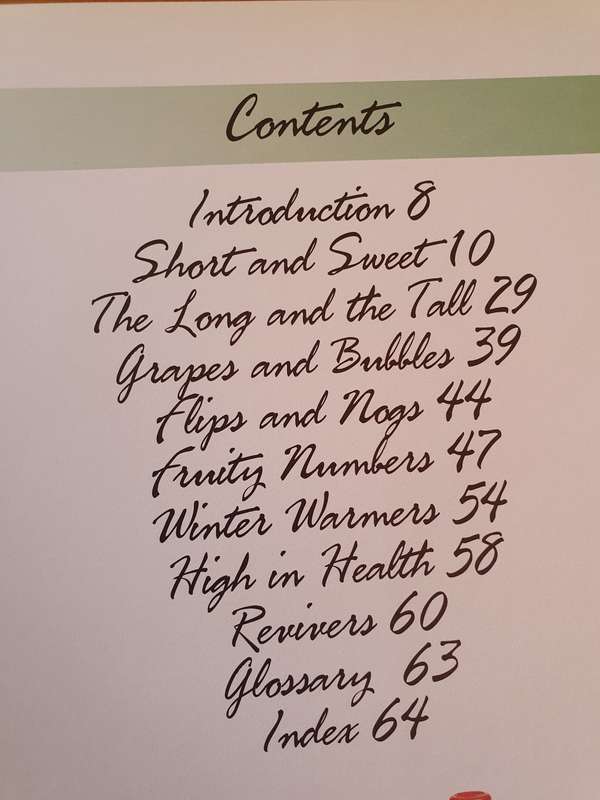 Contents
Introduction 8
Short and Sweet 10
The Long and the Tall 29
Grapes and Bubbles 39
Flips and Nogs 44
Fruity Numbers 47
Winter Warmers 54
High in Health 58
Revivers 60
Glossary 63
Index 64